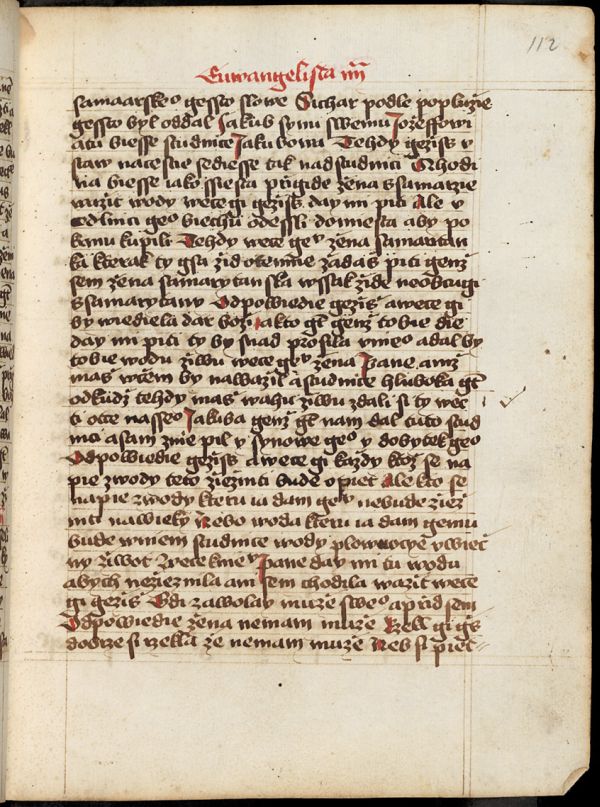 112
Euwangelista iiii
samarske° gessto slowe Sichar podle popluzie
gessto byl oddal Jakub synu swemu Jozeffowi
a tu biesse studnice Jakubowa Tehdy geziss v
staw na cestie sediesse tak nad studnici Ahodi
na biesse iako ssiesta prigide zena s samarzie
wazit wody wece gi geziss day mi piti Ale v
cedlnici ge° biechu odessli do miesta aby po
krmu kupili Tehdy wece geᵛ zena samaritan
ka kterak ty gsa zid otemne zadas piti genz
sem zena samarytanska wssak zide neobcugi
s samarytany Odpowiedie geziss a wece gi
by wiediela dar bozi a kto gt genz tobie die
day mi piti ty by snad prosila v nieo a dal by
tobie wodu ziwu wece geᵛ zena Pane aniz
mas w czem by nawazil a studnice hluboka gt
odkudz tehdy mas wahu ziwu zdali si ty wiec
ti otce nasse° Jakuba genz gt nam dal tuto stud
nici a sam z nie pil y synowe ge° y dobytek ge°
Odpowiedie geziss a wece gi kazdy ktoz se na
pie z wody teto ziezniti bude opiet Ale kto se
napie z wody kteru ia dam geᵛ nebude ziez
niti na wieky Nebo woda kteru ia dam gemu
bude w niem studnice wody plowucye v wiec
ny ziwot Zvece kniemᵛ Pane day mi tu wodu
abych neziezniela ani sem chodila wazit wece
gi geziss Gdi zawolay muze swe° a prid sem
Odpowiedie zena nemam muze Rzekl gi gs
dobrze si rzekla ze nemam muze Neb si piet